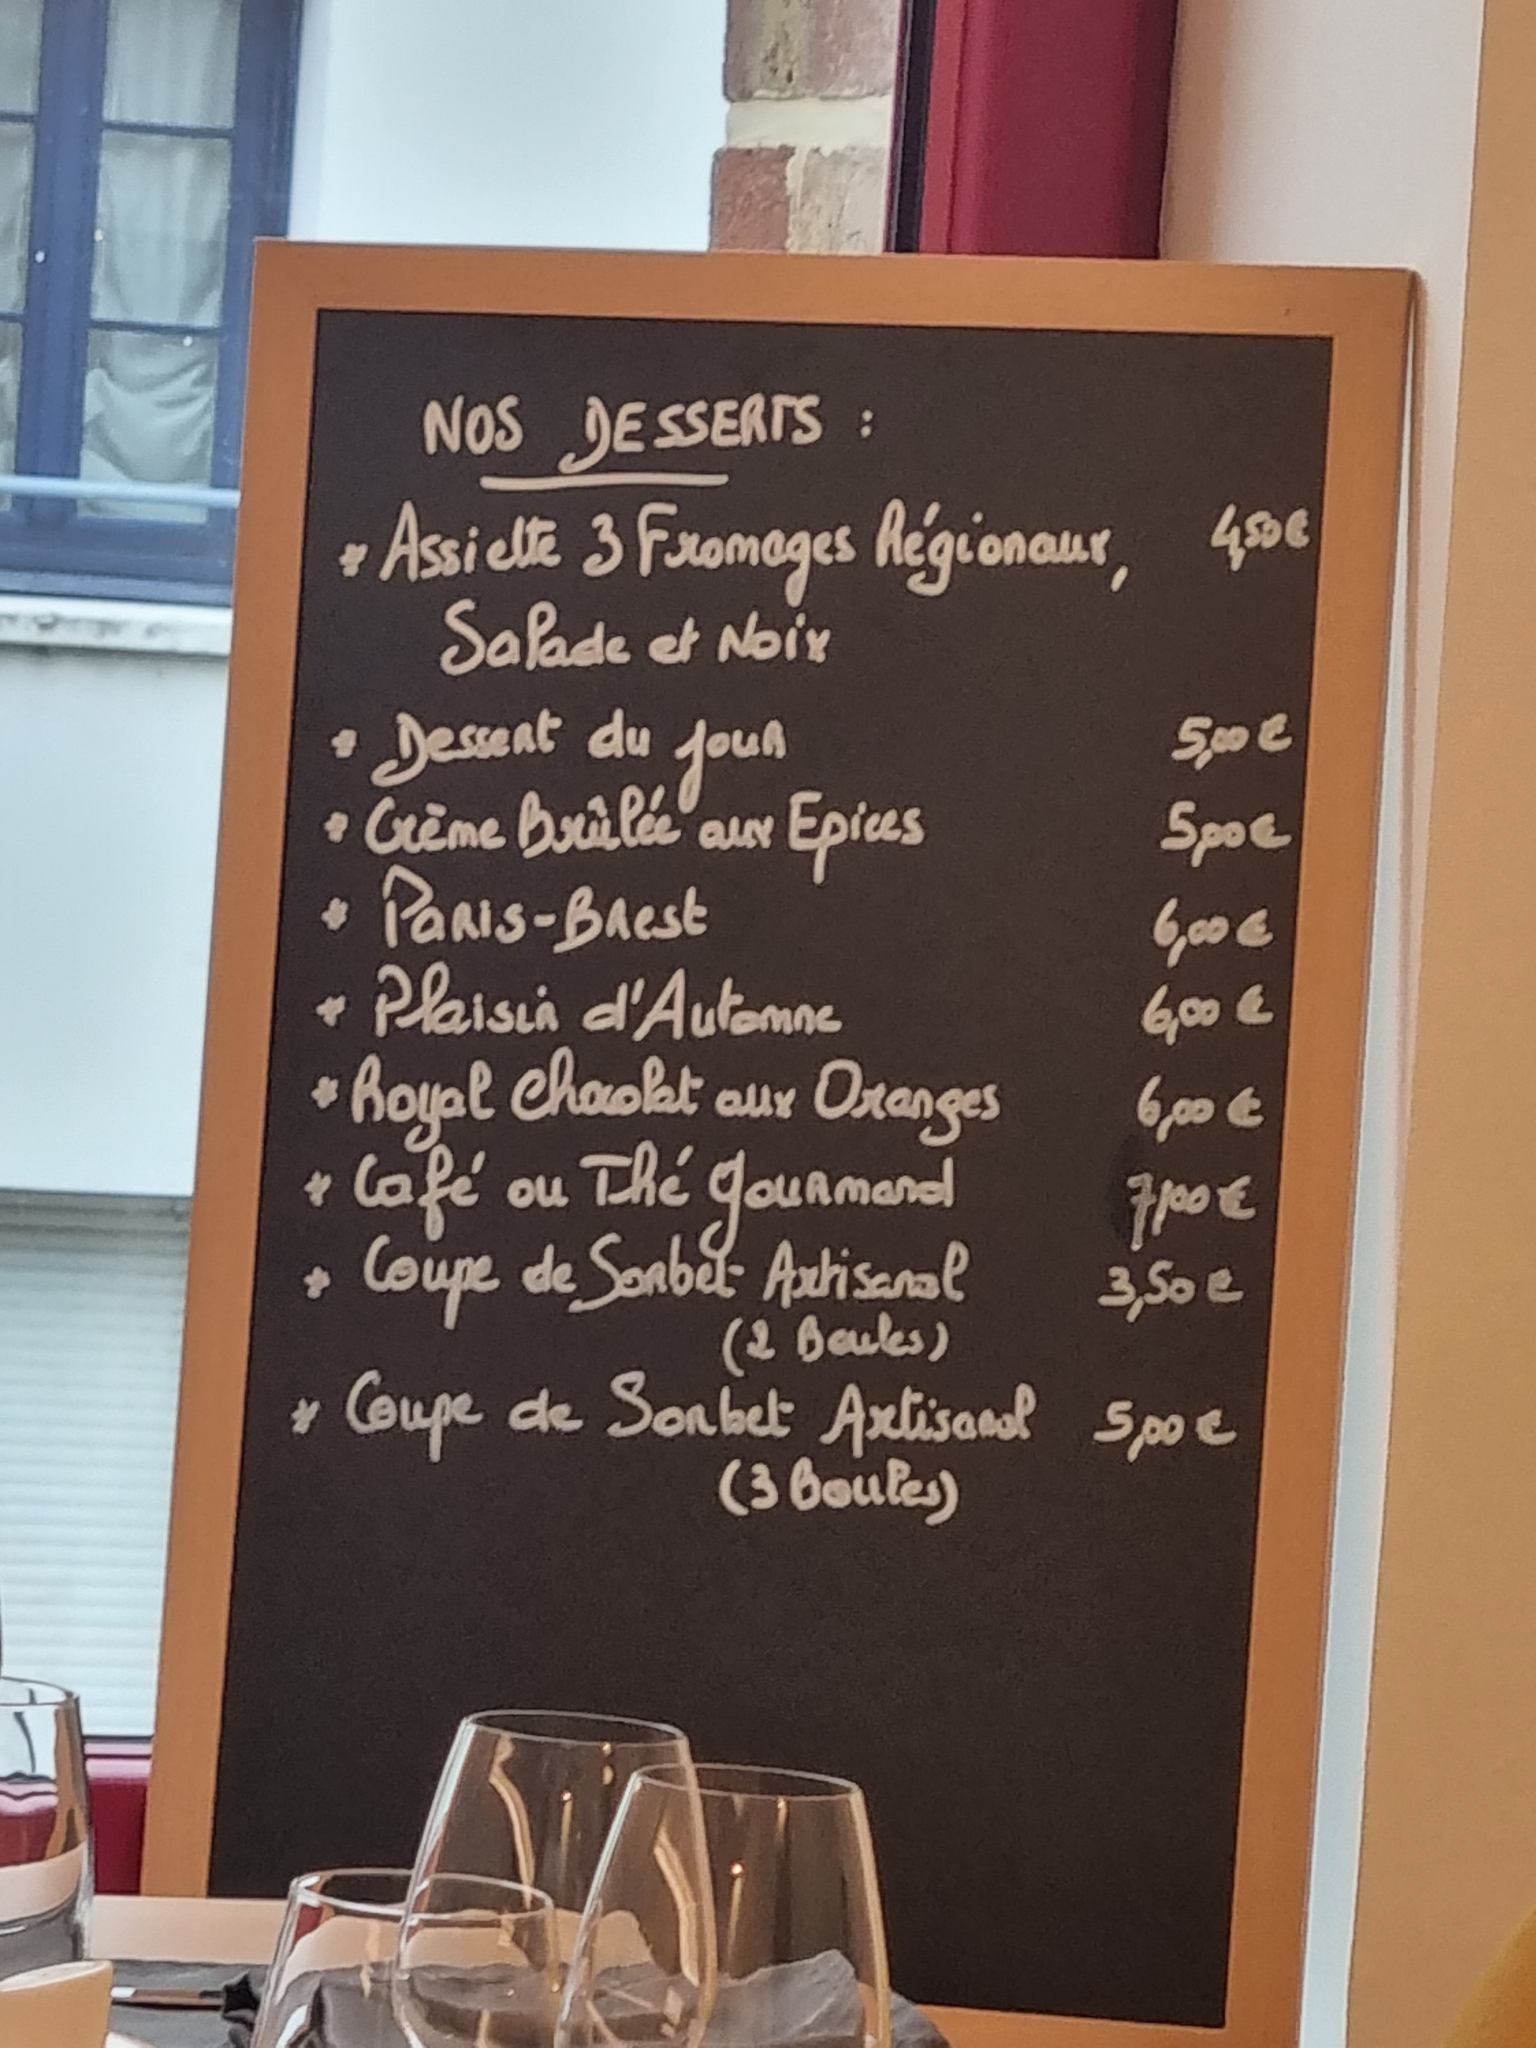 NOS DESSERTS :
* Assiette 3 Fromages Régionaux, 4,50€
Salade et Noix
* Dessert du jour 5,00 €
* Crème Brûlée aux Epices 5,00€
* Paris-Brest 6,00 €
* Plaisir d'Automne 6,00 €
* Royal Chocolat aux Oranges 6,00 €
* Café ou Thé Gourmand 7,00 €
* Coupe de Sorbet Artisanal 3,50 €
(2 Boules)
* Coupe de Sorbet Artisanal 5,00 €
(3 Boules)